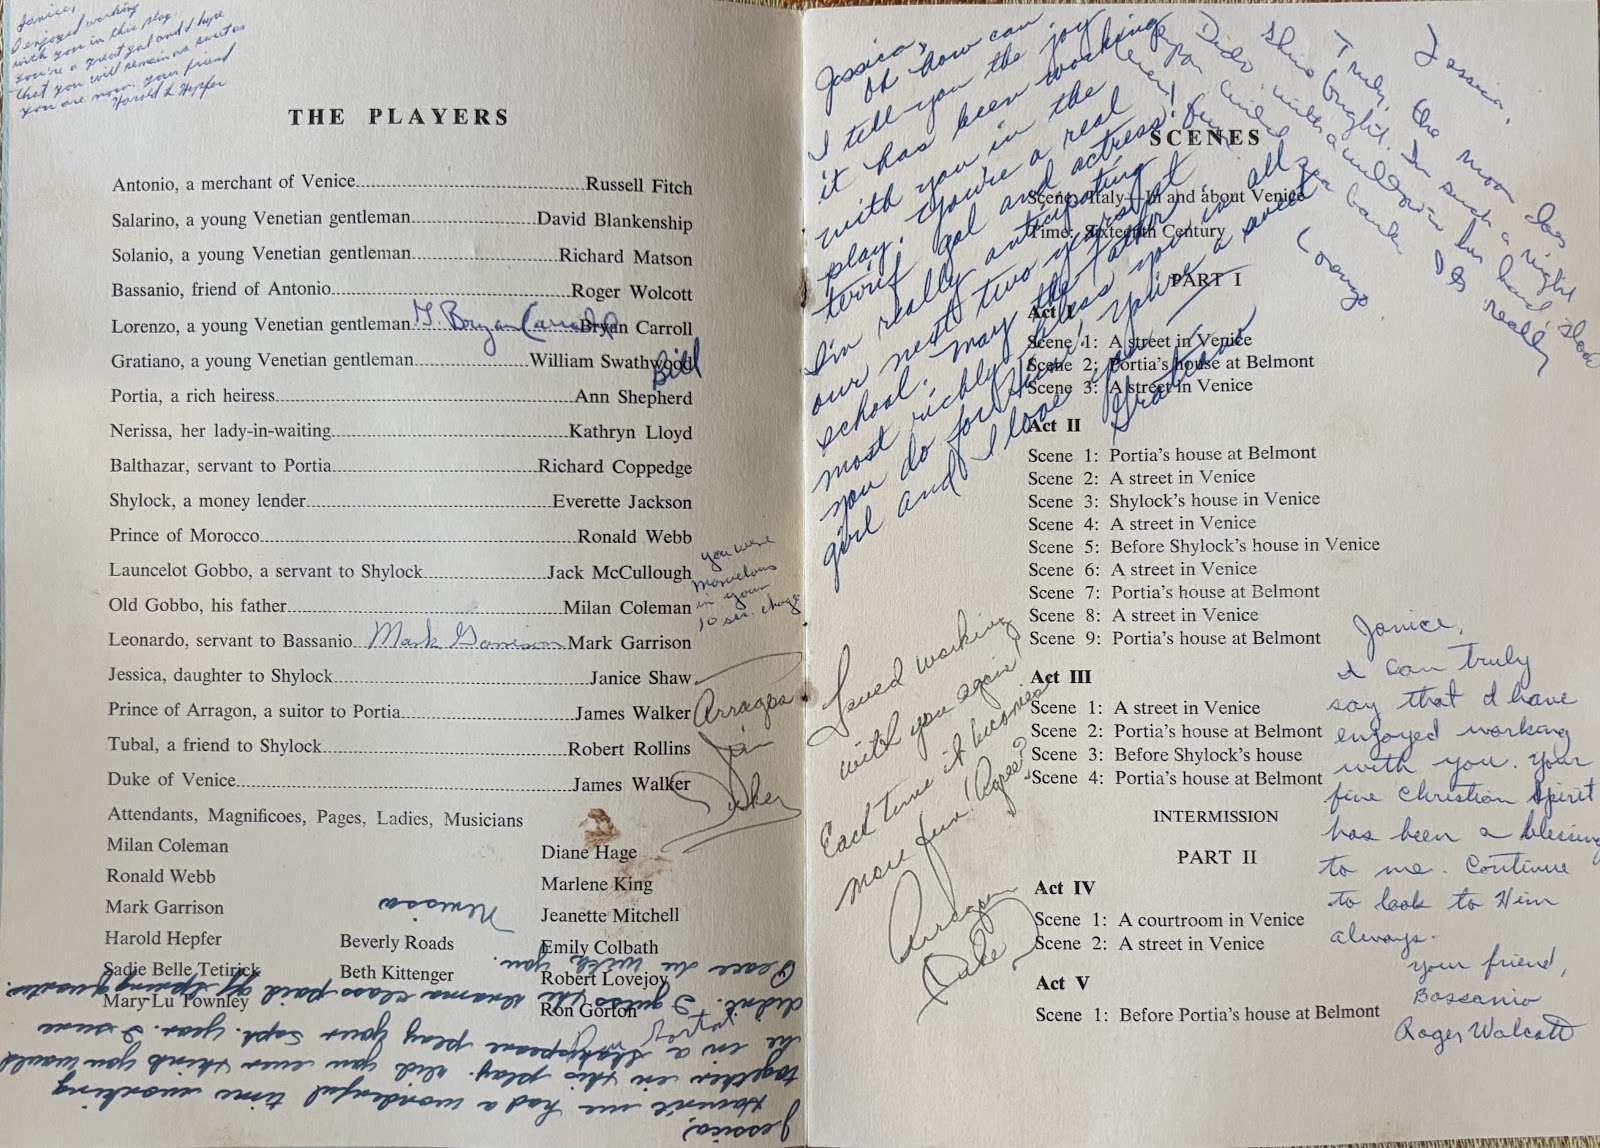 Janice,
I enjoyed working
with you in this play.
You're a great gal and I hope
that you will remain as sweet as
you are now. Your friend
Harold L Hepfer
THE PLAYERS
Antonio, a merchant of Venice Russell Fitch
Salarino, a young Venetian gentleman David Blankenship
Solanio, a young Venetian gentleman Richard Matson
Bassanio, friend of Antonio Roger Wolcott
Lorenzo, a young Venetian gentleman Bryan Carroll
Bryan Carroll
Gratiano, a young Venetian gentleman William Swathwood
Bill
Portia, a rich heiress Ann Shepherd
Nerissa, her lady-in-waiting Kathryn Lloyd
Balthazar, servant to Portia Richard Coppedge
Shylock, a money lender Everette Jackson
Prince of Morocco Ronald Webb
Launcelot Gobbo, a servant to Shylock Jack McCullough
Old Gobbo, his father Milan Coleman
Leonardo, servant to Bassanio Mark Garrison Mark Garrison
Jessica, daughter to Shylock Janice Shaw
Prince of Arragon, a suitor to Portia James Walker
Tubal, a friend to Shylock Robert Rollins
Duke of Venice James Walker
you were
marvelous
in your
10 sec. change
Arragon
Jim
Attendants, Magnificoes, Pages, Ladies, Musicians
Milan Coleman
Ronald Webb
Mark Garrison
Harold Hepfer
Sadie Belle Tetirick
Mary Lu Townley
Beverly Roads
Beth Kittenger
Diane Hage
Marlene King
Jeanette Mitchell
Emily Colbath
Robert Lovejoy
Ron Gorton
Jessica,
Haven't we had a wonderful time working
together in this play. Did you ever think you would
be in a Shakespeare play your soph. year. I sure
didn't. I guess the drama class paid off spring quarter.
Peace be with you.
Nerissa
Jessica,
Oh how can
I tell you the joy
it has been working
with you in the
play. You're a real
terrif gal and actress!
I'm really anticipating
our next two years at
school. May the Father
most richly bless you in all
you do for Him! You're a sweet
girl and I love you
Gratiano
Jessica,
Truly, the moon does
shine bright. In such a night
Did Dido with a willow in her hand stood
upon wild sea banks
Lorenzo
SCENES
Scene: Italy—In and about Venice
Time: Sixteenth Century
PART I
Act I
Scene 1: A street in Venice
Scene 2: Portia's house at Belmont
Scene 3: A street in Venice
Act II
Scene 1: Portia's house at Belmont
Scene 2: A street in Venice
Scene 3: Shylock's house in Venice
Scene 4: A street in Venice
Scene 5: Before Shylock's house in Venice
Scene 6: A street in Venice
Scene 7: Portia's house at Belmont
Scene 8: A street in Venice
Scene 9: Portia's house at Belmont
Act III
Scene 1: A street in Venice
Scene 2: Portia's house at Belmont
Scene 3: Before Shylock's house
Scene 4: Portia's house at Belmont
INTERMISSION
PART II
Act IV
Scene 1: A courtroom in Venice
Scene 2: A street in Venice
Act V
Scene 1: Before Portia's house at Belmont
Loved working
with you again!
Each time it becomes
more fun! Agree?
Arragon
Duke
Janice,
I can truly
say that I have
enjoyed working
with you. Your
fine Christian Spirit
has been a blessing
to me. Continue
to look to Him
always.
Your friend,
Bassanio
Roger Wolcott